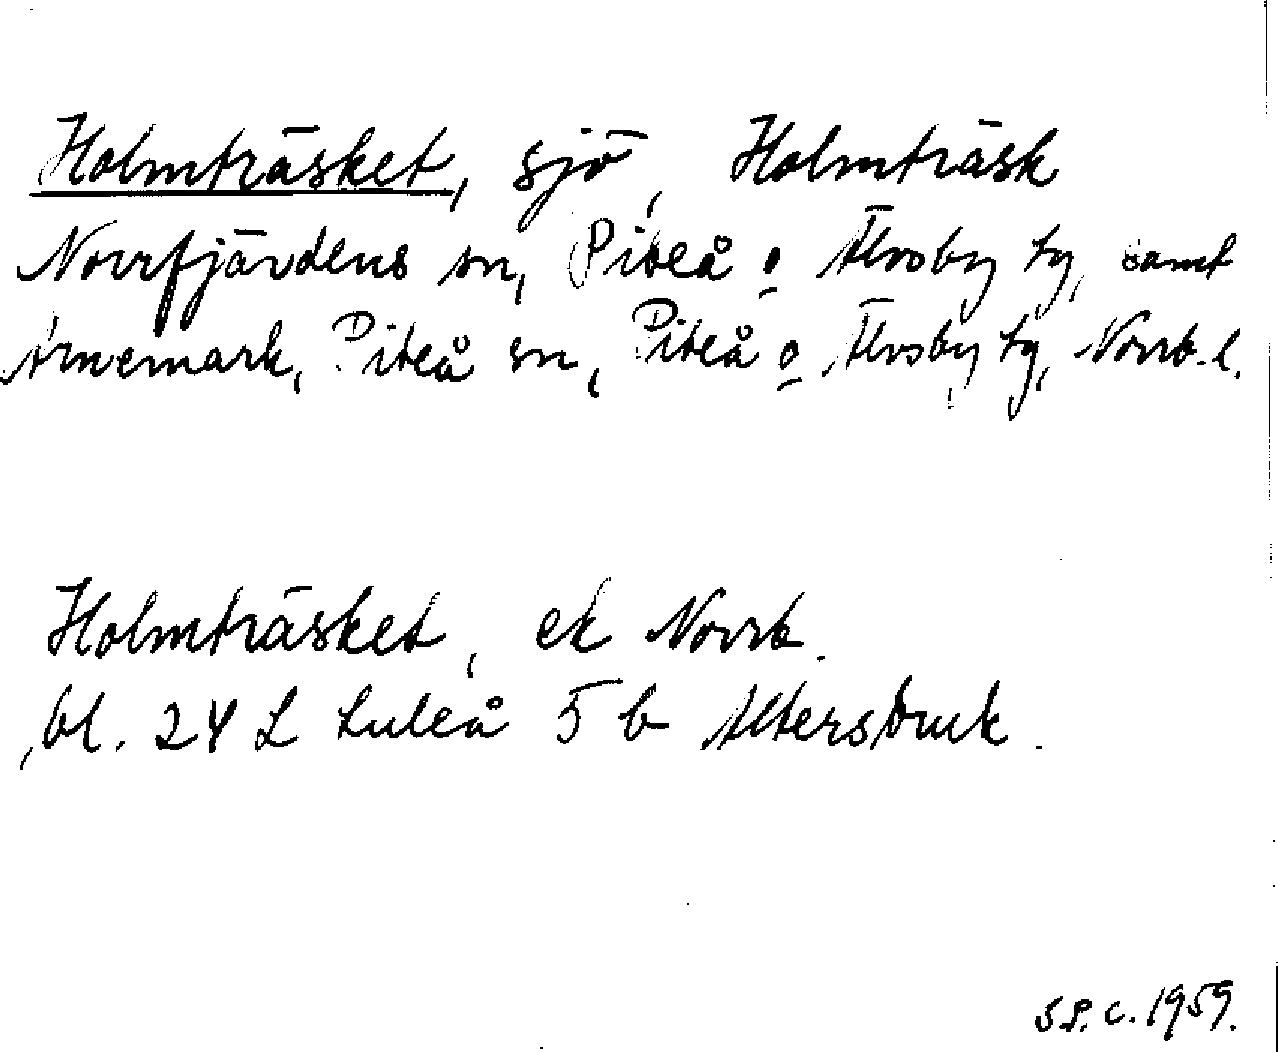 Holmträsket, sjö, Holmträsk
Norrfjärdens sn, Piteå o Älvsby tg, samt
Arnemark, Piteå sn, Piteå o Älvsby tg, Norrb. l.
Holmträsket, ek Norrb.
bl. 24 L Luleå 5 b Altersbruk.
S.P. c. 1959.